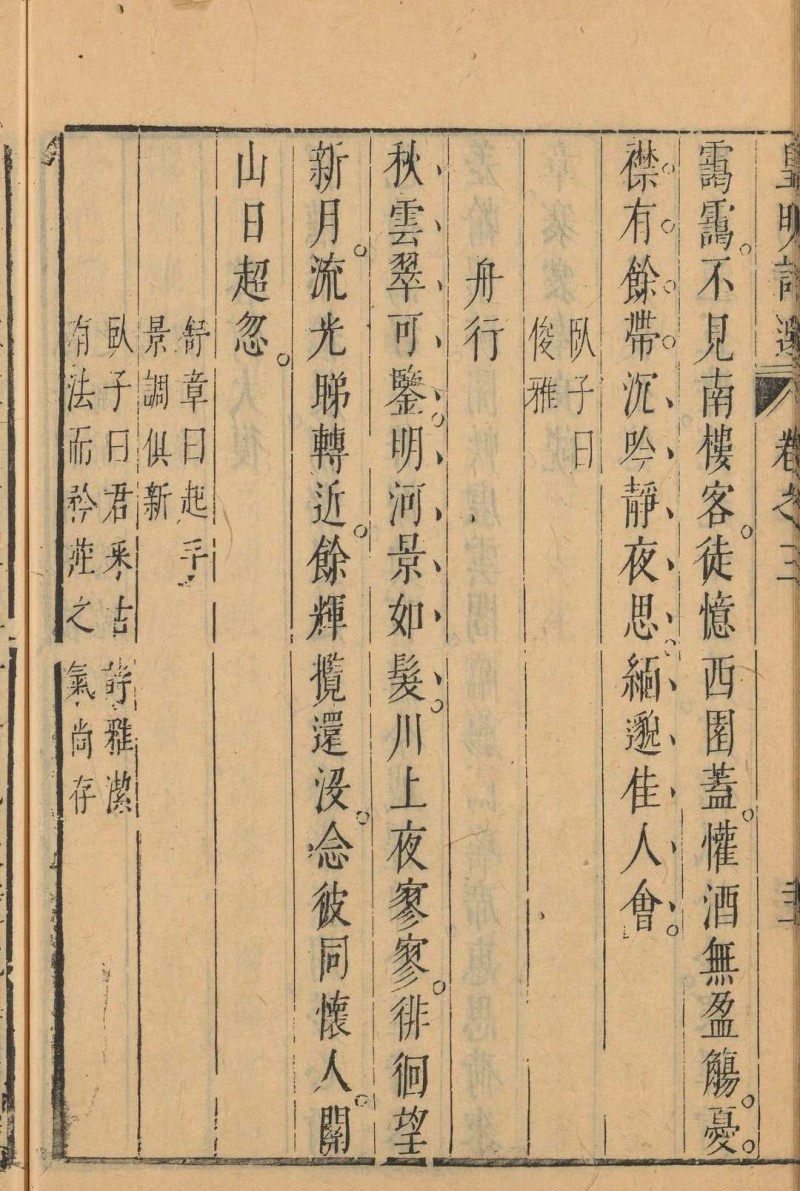 皇明詩選 卷之三
靄靄不見南樓客徒憶西園蓋懽酒無盈觴憂
襟有餘帶沉吟靜夜思緬邈佳人會
臥子曰
俊雅
舟行
秋雲翠可鑒明河景如髮川上夜寥寥徘徊望
新月流光睇轉近餘輝攬還沒念彼同懷人關
山日超忽
舒章曰起乎
景調俱新
臥子曰君采古詩雅潔
有法而矜莊之氣尚存